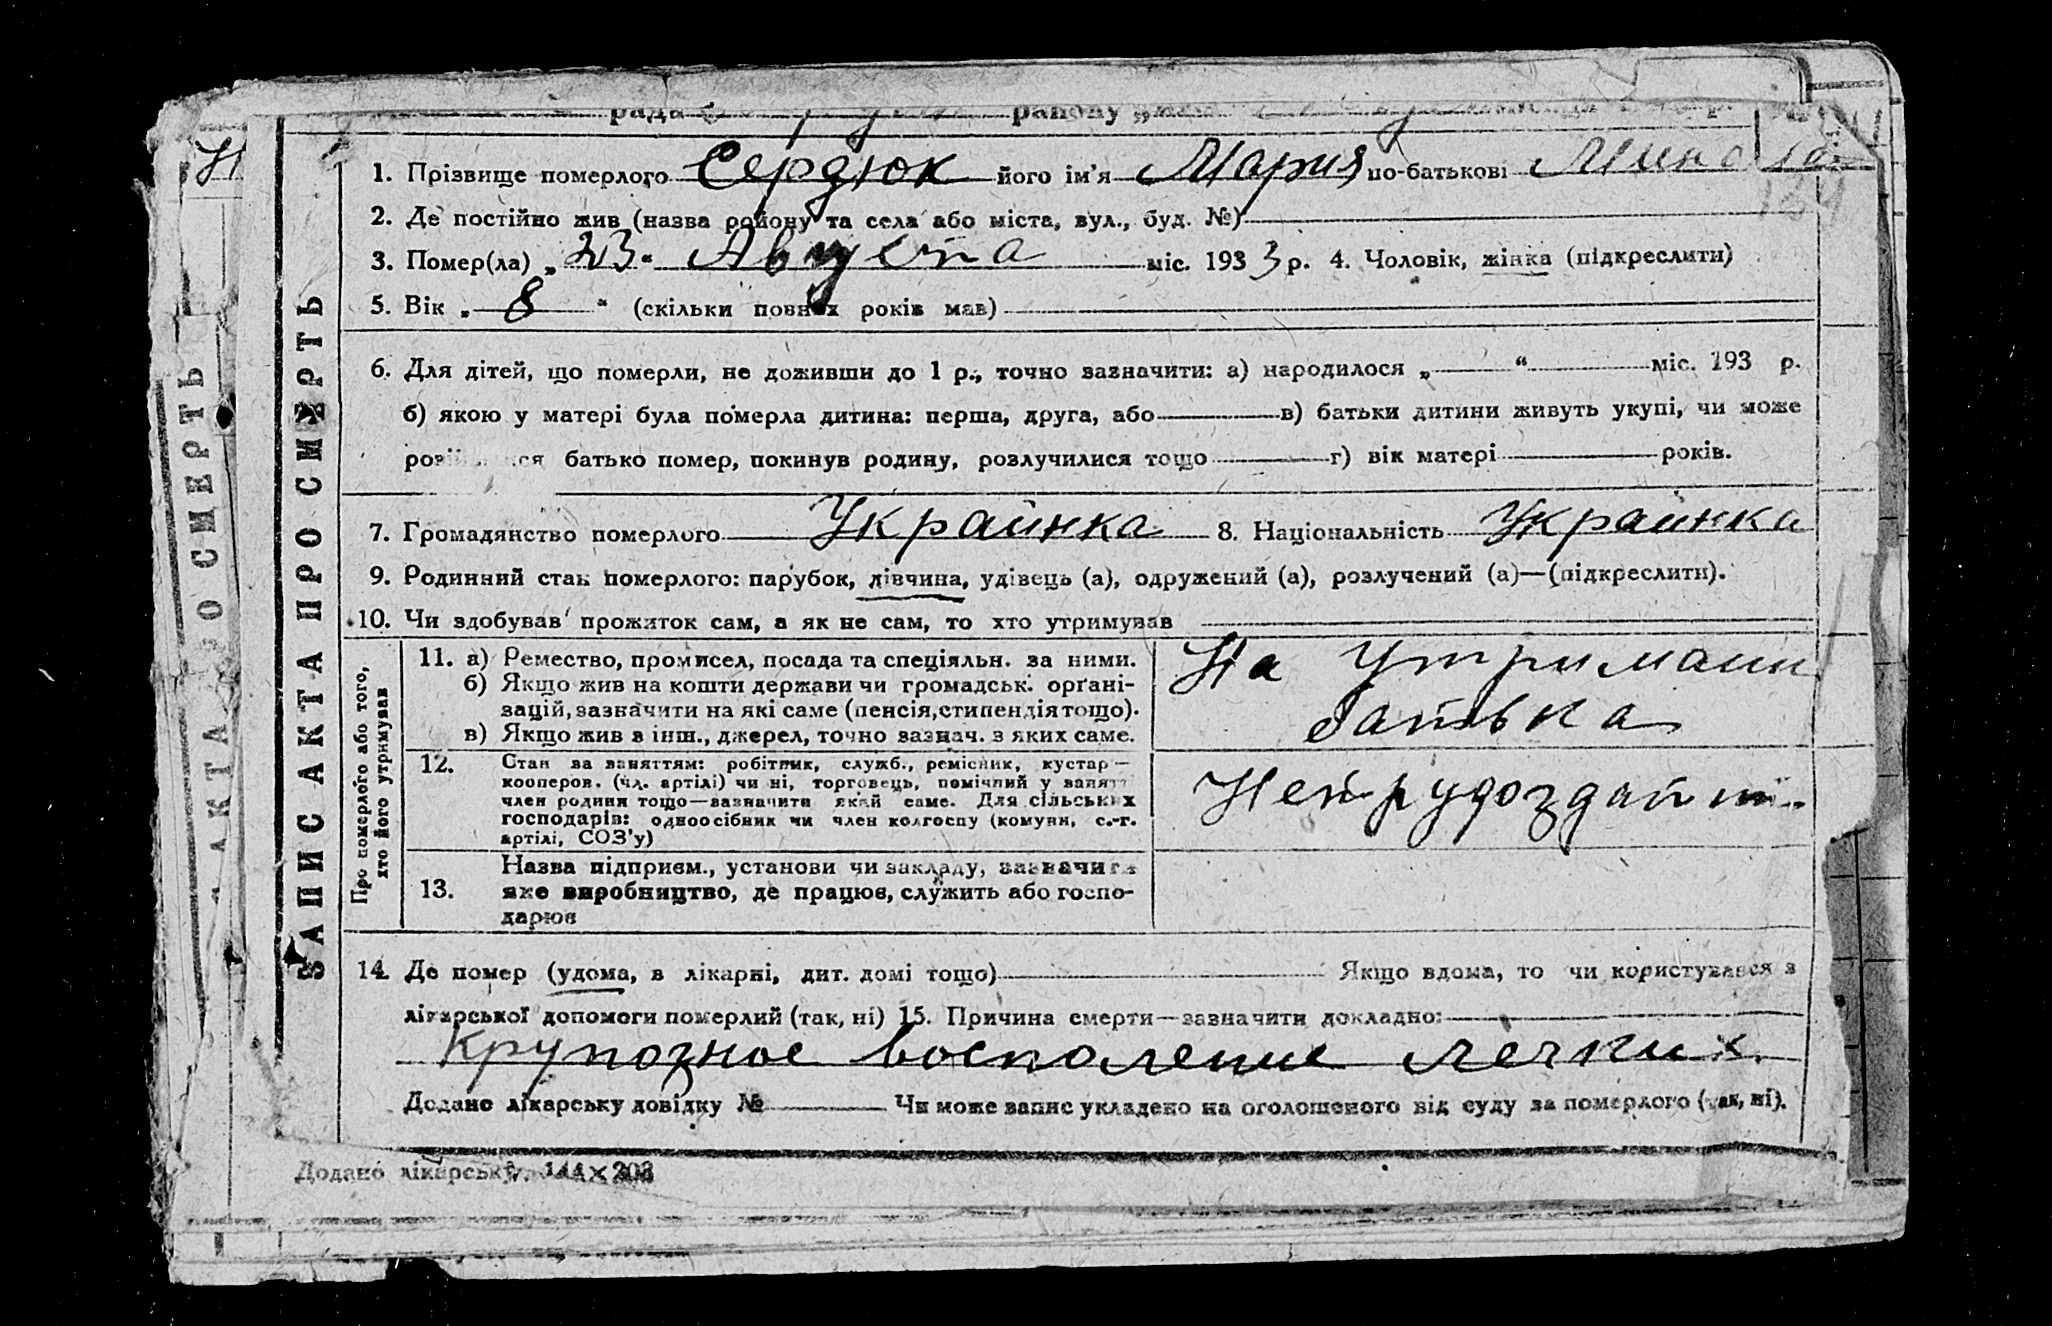 рада району
1. Прізвище померлого Сердюк його ім'я Мария по-батькові
164
2. Де постійно жив (назва району та села або міста, вул., буд. №)
3. Помер(ла) „23“ Августа міс. 1933 р. 4. Чоловік, жінка (підкреслити)
5. Вік „8“ (скільки повних років мав)
6. Для дітей, що померли, не доживши до 1 р., точно зазначити: а) народилося „ “ міс. 193 р.
б) якою у матері була померла дитина: перша, друга, або в) батьки дитини живуть укупі, чи може
батько помер, покинув родину, розлучилися тощо г) вік матері років.
7. Громадянство померлого Украинка 8. Національність Украинка
9. Родинний стан померлого: парубок, дівчина, удівець (а), одружений (а), розлучений (а)—(підкреслити).
10. Чи здобував прожиток сам, а як не сам, то хто утримував
Про померлого або того, хто його утримував
11. а) Ремество, промисел, посада та спеціяльн. за ними.
б) Якщо жив на кошти держави чи громадськ. орґані-
зацій, зазначити на які саме (пенсія, стипендія тощо).
в) Якщо жив в інш., джерел, точно зазнач. з яких саме.
На утриман
батька
12. Стан за заняттям: робітник, служб., ремісник, кустар—
кооперов. (чл. артілі) чи ні, торговець, помічний у занят
член родини тощо—зазначити який саме. Для сільських
господарів: одноосібник чи член колгоспу (комуни, с.-г.
артілі, СОЗ'у)
Нетрудоздатн.
13. Назва підприєм., установи чи закладу, зазначити
яке виробництво, де працює, служить або госпо-
дарює
14. Де помер (удома, в лікарні, дит. домі тощо) Якщо вдома, то чи користувався з
лікарської допомоги померлий (так, ні) 15. Причина смерти—зазначити докладно:
Крупозное восполение легких.
Додано лікарську довідку № Чи може запис укладено на оголошеного від суду за померлого (так, ні).
Додано лікарську 144×203
ЗАПИС АКТА ПРО СМЕРТЬ
АКТА О СМЕРТЬ